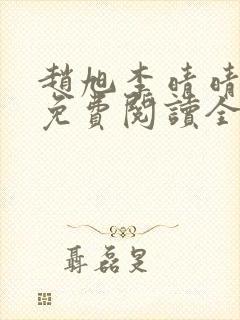 趙旭李晴晴
免費閱讀全
聶磊旻